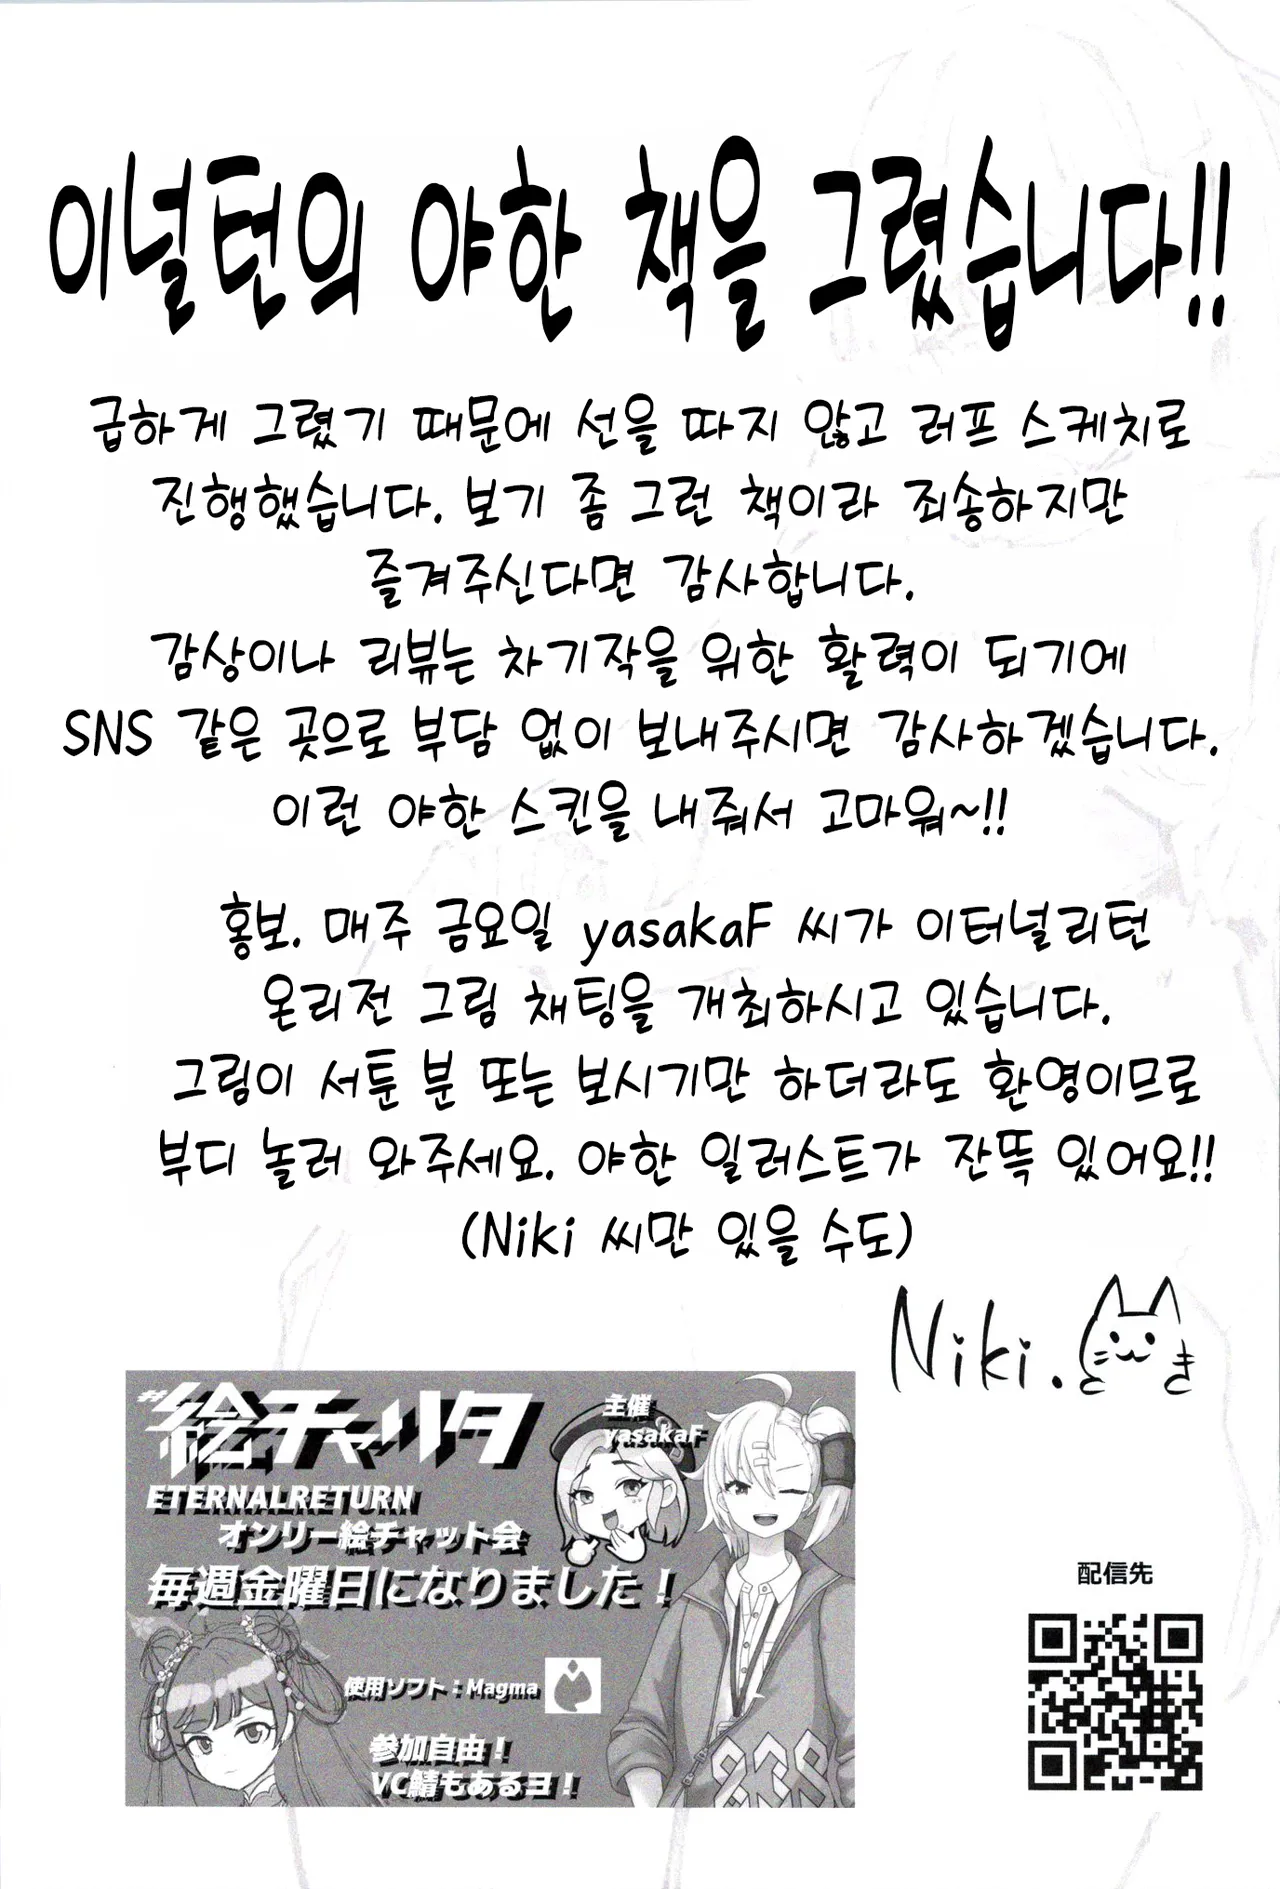 이널턴의 야한 책을 그렸습니다!!
급하게 그렸기 때문에 선을 따지 않고 러프 스케치로
진행했습니다. 보기 좀 그런 책이라 죄송하지만
즐겨주신다면 감사합니다.
감상이나 리뷰는 차기작을 위한 활력이 되기에
SNS 같은 곳으로 부담 없이 보내주시면 감사하겠습니다.
이런 야한 스킨을 내줘서 고마워~!!
홍보. 매주 금요일 yasakaF 씨가 이터널리턴
온리전 그림 채팅을 개최하시고 있습니다.
그림이 서툰 분 또는 보시기만 하더라도 환영이므로
부디 놀러 와주세요. 야한 일러스트가 잔뜩 있어요!!
(Niki 씨만 있을 수도)
Niki.
き
#絵チャッタ
主催
yasakaF
ETERNALRETURN
オンリー絵チャット会
毎週金曜日になりました!
使用ソフト:Magma
参加自由!
VC鯖もあるヨ!
配信先